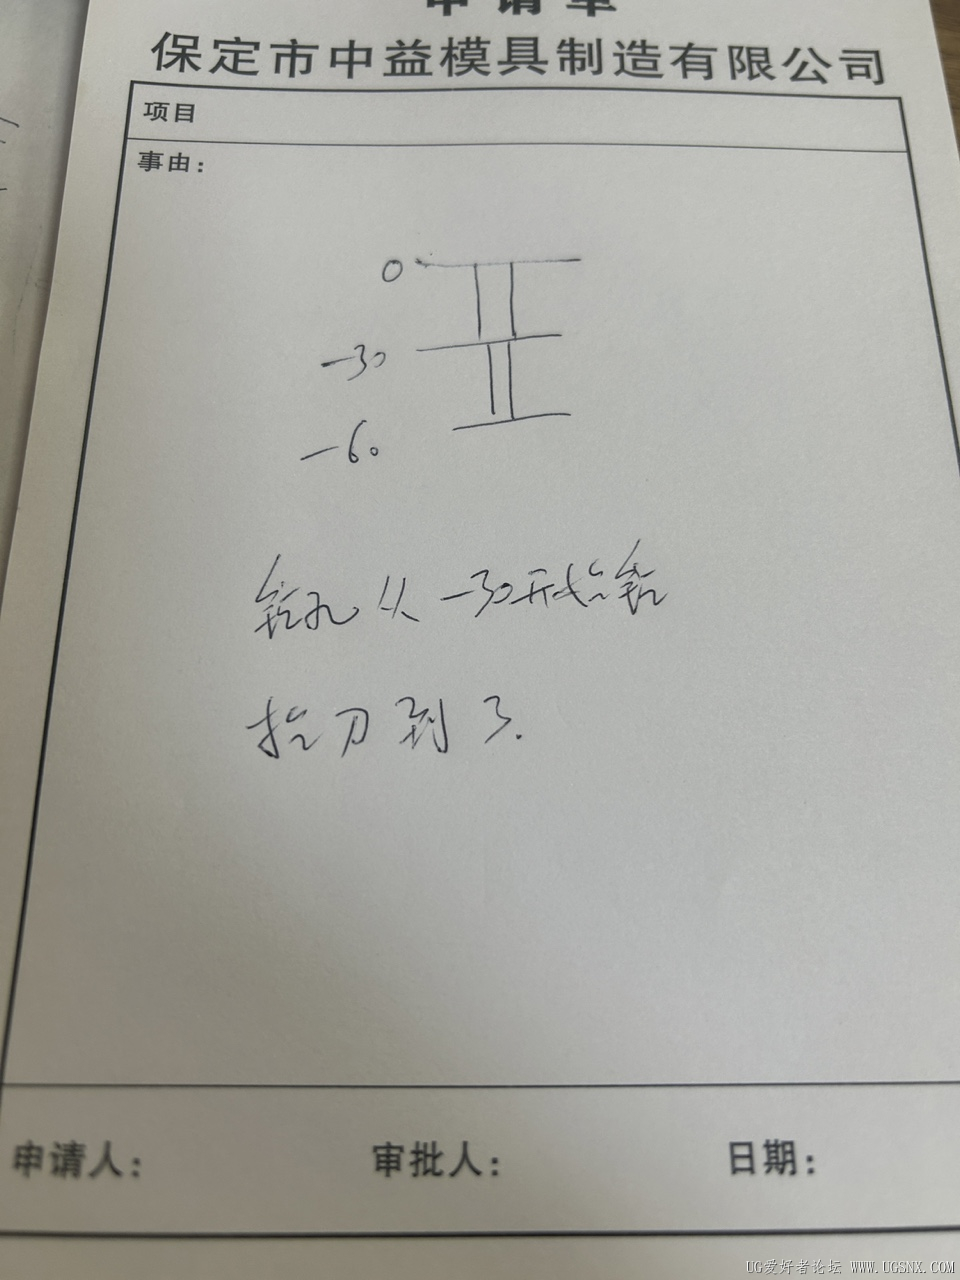 申请单
保定市中益模具制造有限公司
项目
事由：
0
-30
-60
钻孔从-30开始钻
抬刀到3.
申请人：
审批人：
日期：
UG爱好者论坛 WWW.UGSNX.COM